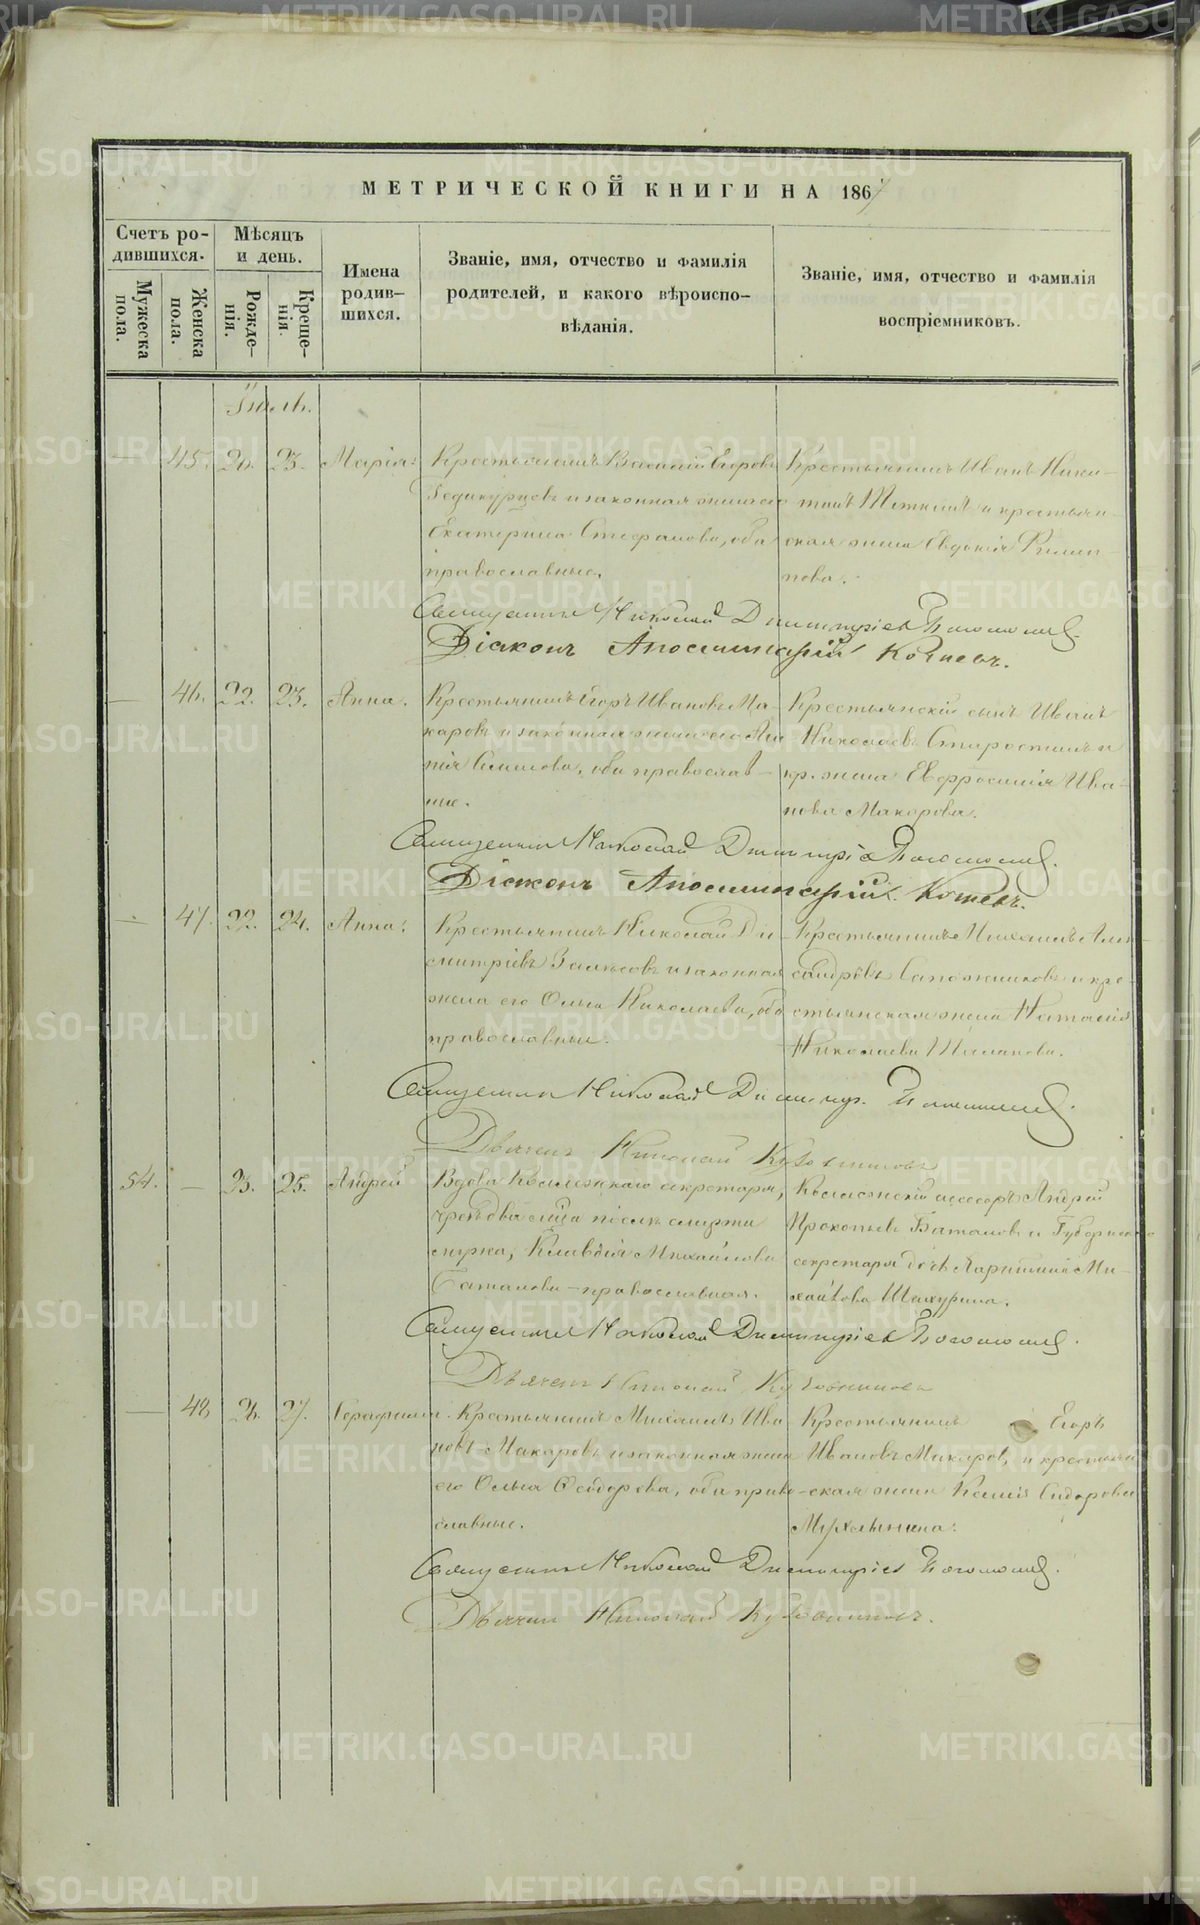 МЕТРИЧЕСКОЙ КНИГИ НА 1867
Счетъ ро-
дившихся.
Мужеска
пола.
Женска
пола.
Мѣсяцъ
и день.
Рожде-
нія.
Креще-
нія.
Имена
родив-
шихся.
Званіе, имя, отчество и фамилія
родителей, и какого вѣроиспо-
вѣданія.
Званіе, имя, отчество и фамилія
воспріемниковъ.
Іюль.
45. 20. 23. Марія.
Крестьянинъ Василій Егоровъ
и законная жена его
Екатерина Стефанова, оба
православные.
Крестьянинъ Иванъ Ники-
и крестьян-
ская жена Евдокія Филип-
пова.
Священникъ Николай Димитріев
Діаконъ Аполлинарій
46. 22. 23. Анна.
Крестьянинъ Егоръ Ивановъ Ма-
каровъ и законная жена его
оба православ-
ные.
Крестьянскій сынъ Иванъ
Николаевъ Старостинъ и
кр. жена Евфросинія Ива-
нова Макарова.
Священникъ Николай Димитріев
Діаконъ Аполлинарій
47. 22. 24. Анна.
Крестьянинъ Николай Ди-
митріевъ и законная
жена его Ольга Николаева, оба
православные.
Крестьянинъ Михаилъ Алек-
сандровъ Сапожниковъ и кре-
стьянская жена Наталія
Николаева
Священникъ Николай Димитр.
Дьячекъ Николай
54. — 23. 25. Андрей
Вдова Коллежскаго секретаря,
чрезъ два мѣсяца послѣ смерти
мужа, Клавдія Михайлова
Баталова – православная.
Коллежскій ассесоръ Андрей
Прокопьевъ Баталовъ и Губернскаго
секретаря дочь Ми-
хайлова
Священникъ Николай Димитріев
Дьячекъ Николай
— 48. 26. 27. Серафима.
Крестьянинъ Михаилъ Ива-
новъ Макаровъ и законная жена
его Ольга Ѳеодорова, оба право-
славные.
Крестьянинъ Егоръ
Ивановъ Макаровъ, и крестьян-
ская жена Ксенія Сидорова
Священникъ Николай Димитріев
Дьячекъ Николай
METRIKI.GASO-URAL.RU